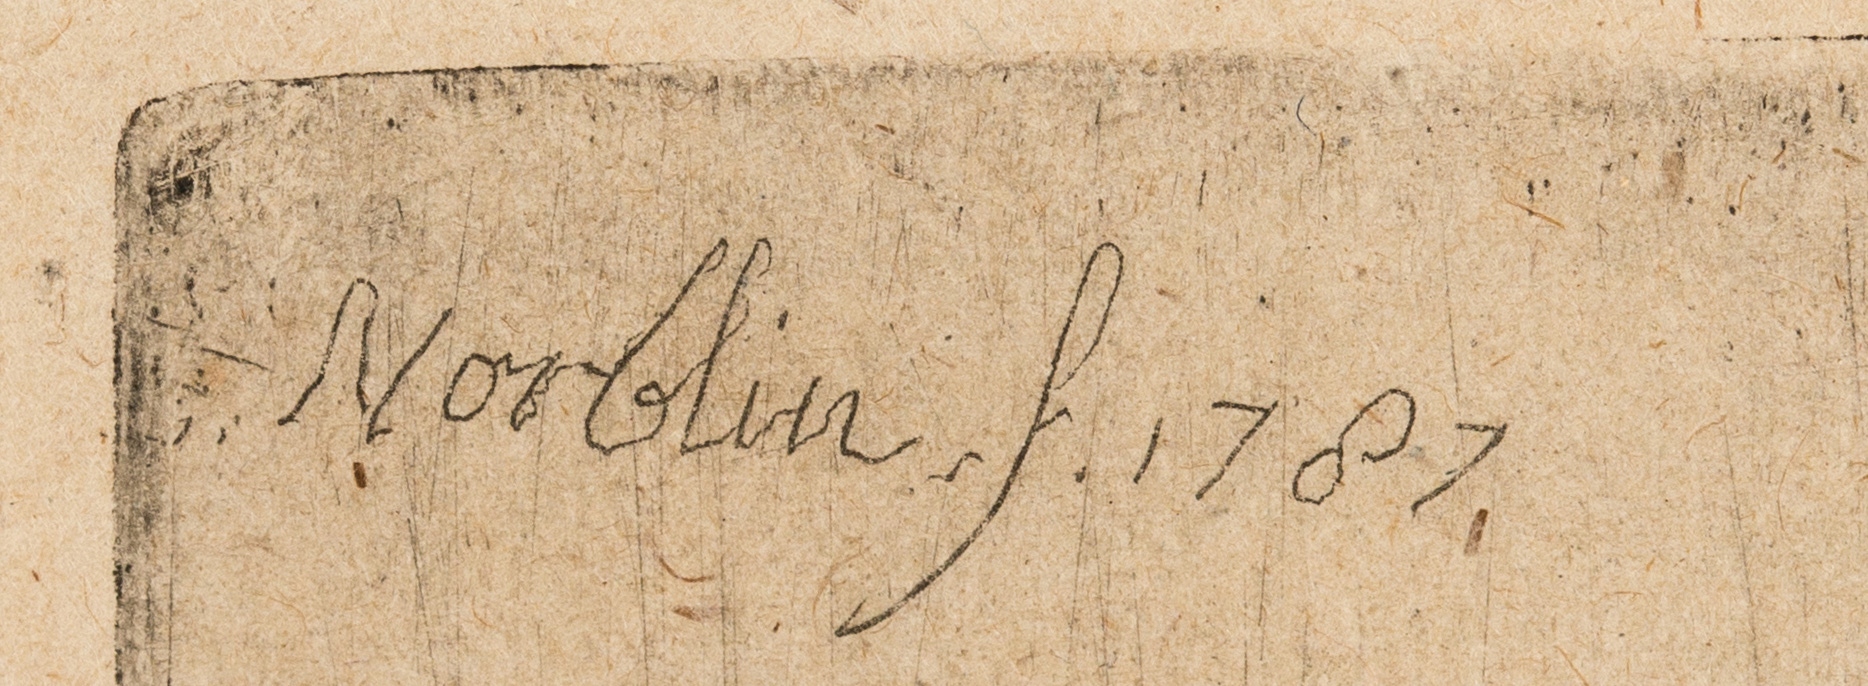 Norblin . f. 1787